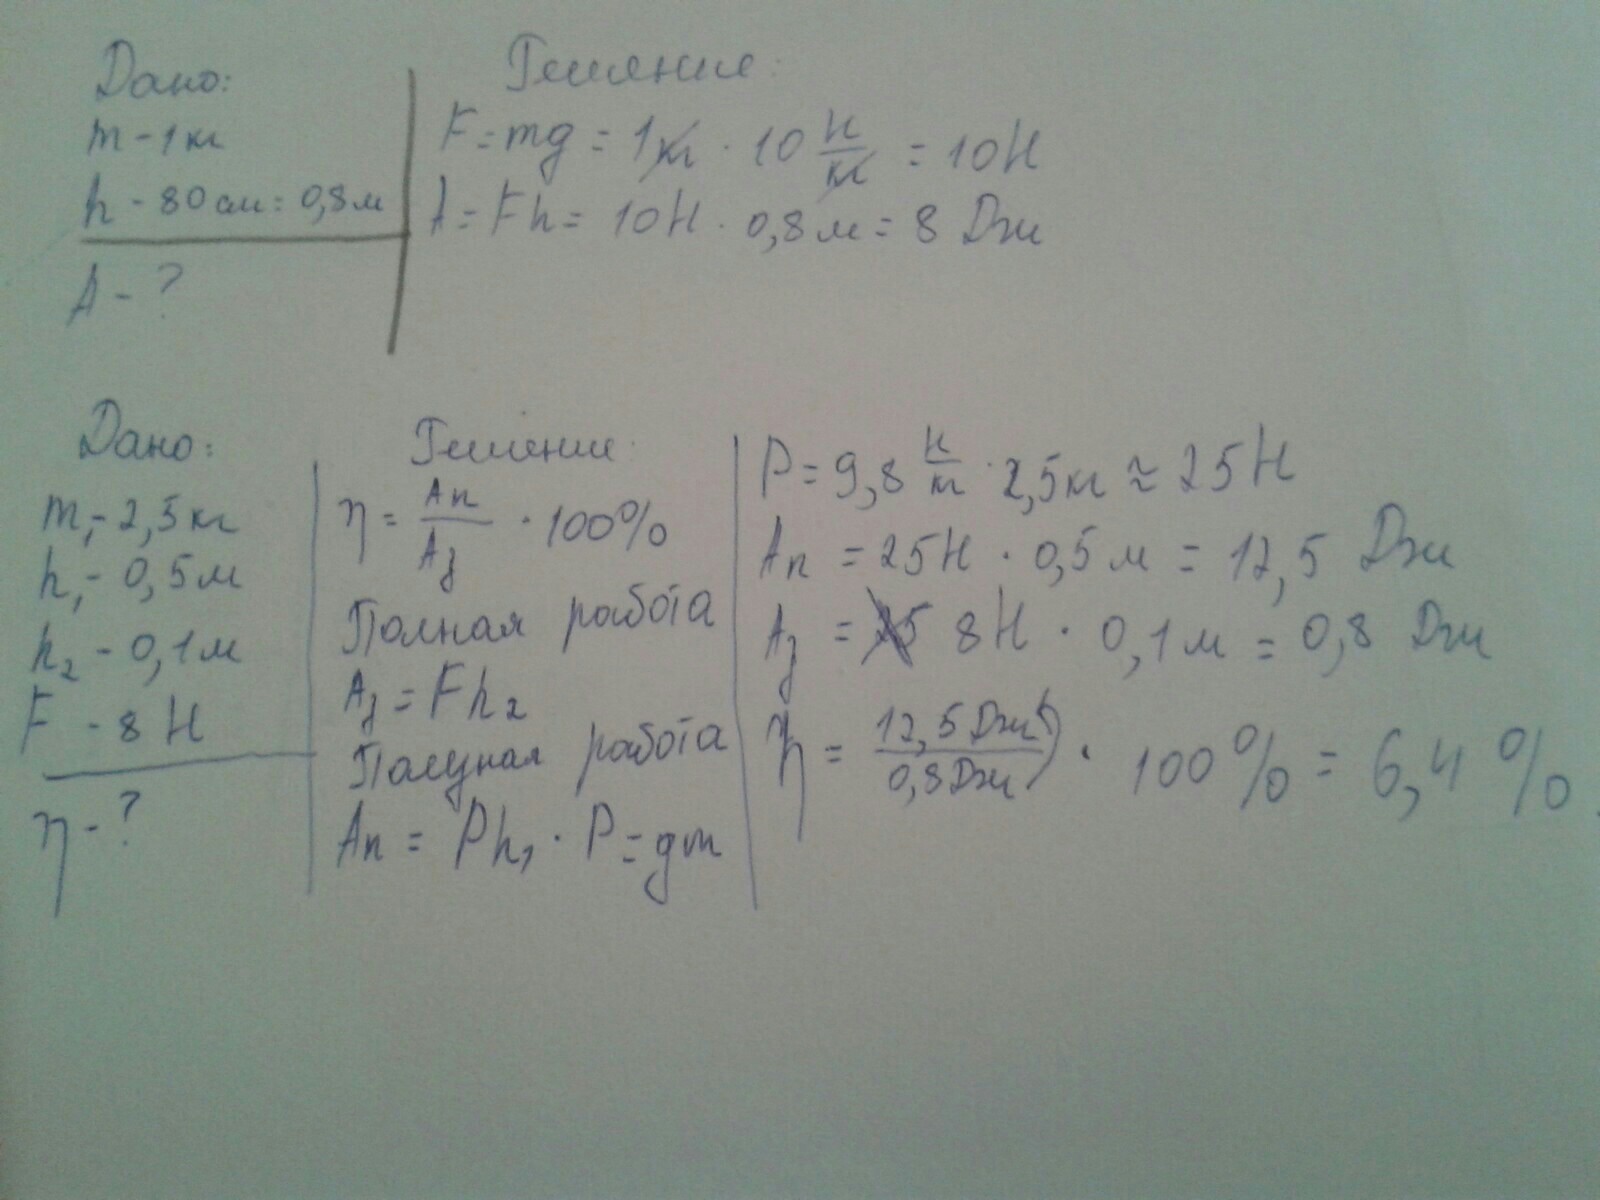 Дано:
m - 1 кг
h - 80 см = 0,8 м
A - ?
Решение:
F = mg = 1кг · 10 Н/кг = 10Н
A = Fh = 10Н · 0,8 м = 8 Дж
Дано:
m₁ - 2,5 кг
h₁ - 0,5 м
h₂ - 0,1 м
F - 8 Н
η - ?
Решение:
η = Aп/Aз · 100%
Полная работа
Aз = Fh₂
Полезная работа
Aп = Ph₁ · P = gm
P = 9,8 Н/кг · 2,5 кг ≈ 25Н
Aп = 25Н · 0,5 м = 12,5 Дж
Aз = 8Н · 0,1 м = 0,8 Дж
η = 12,5 Дж/0,8 Дж · 100% = 6,4 %